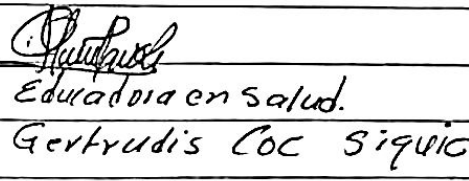 Educadora en Salud.
Gertrudis Coc Siquic